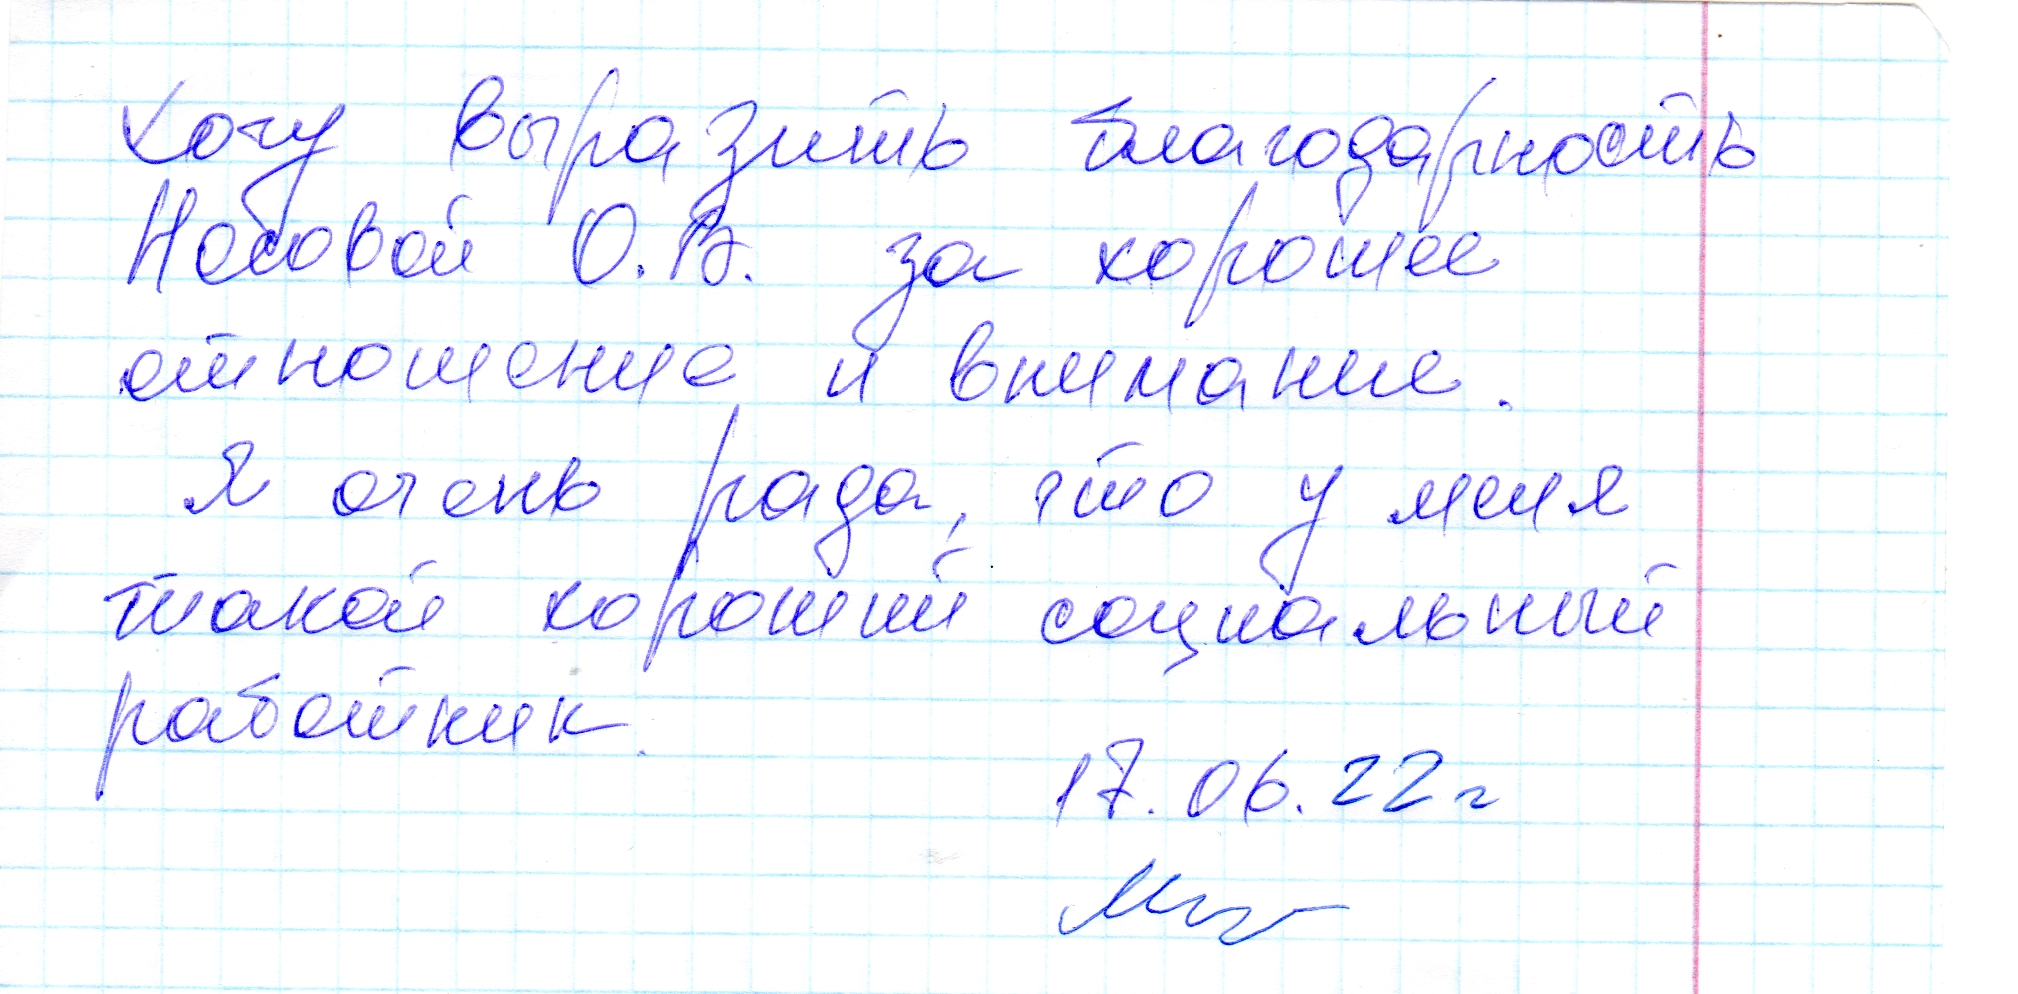 Хочу выразить благодарность
Носовой О.В. за хорошее
отношение и внимание.
Я очень рада, что у меня
такой хороший социальный
работник.
17.06.22г